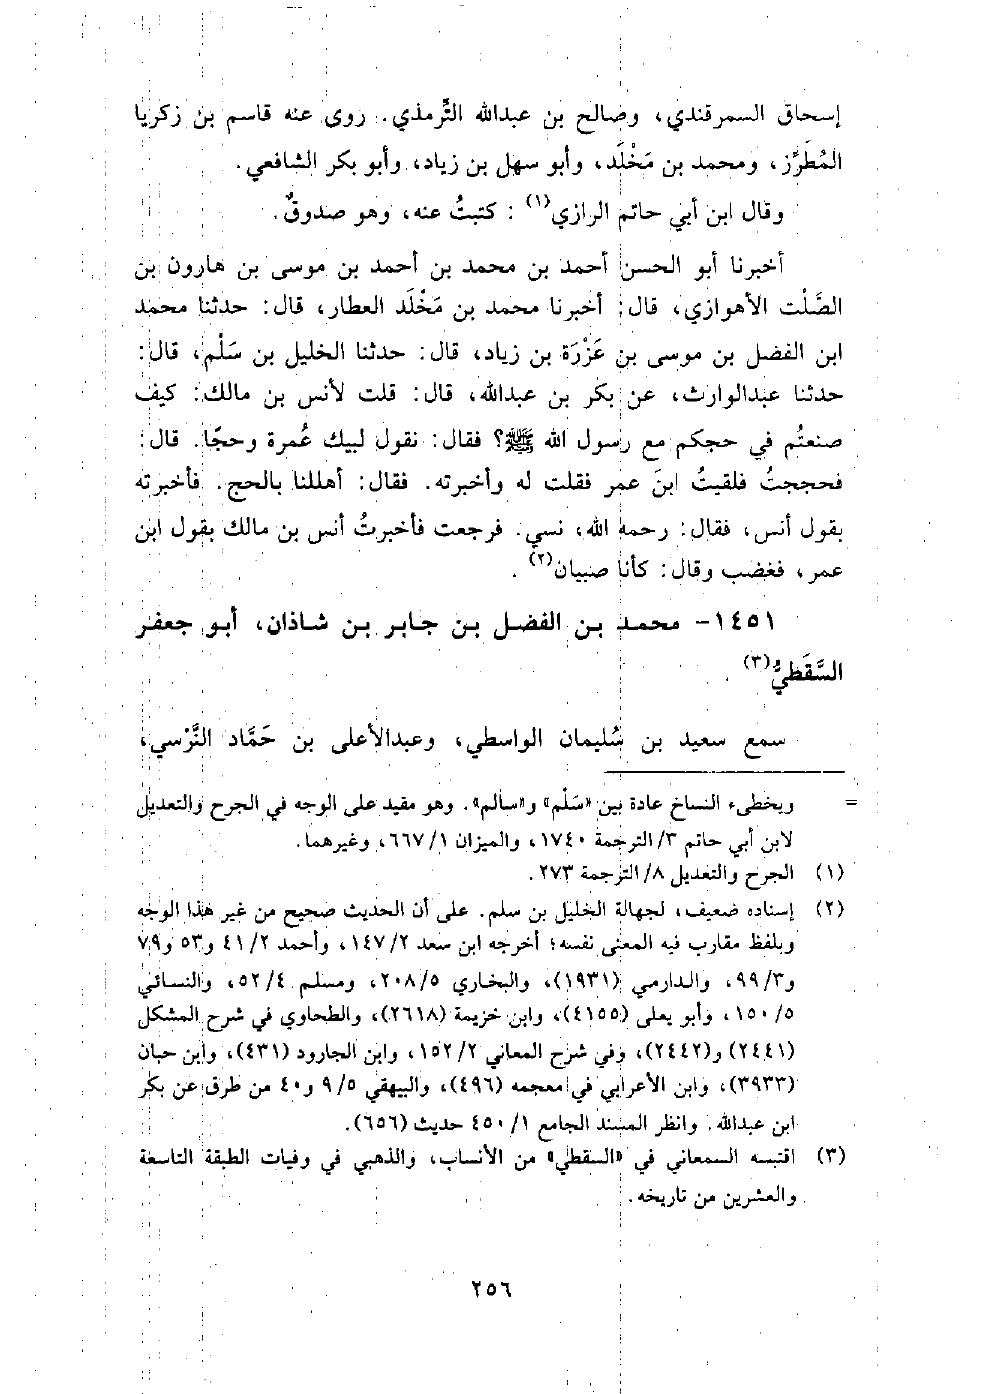 إسحاق السمرقندي، وصالح بن عبدالله الترمذي. روى عنه قاسم بن زكريا
المُطَرِّز، ومحمد بن مَخْلَد، وأبو سهل بن زياد، وأبو بكر الشافعي.
وقال ابن أبي حاتم الرازي(١): كتبتُ عنه، وهو صدوقٌ.
أخبرنا أبو الحسن أحمد بن محمد بن أحمد بن موسى بن هارون بن
الصَّلْت الأهوازي، قال: أخبرنا محمد بن مَخْلَد العطار، قال: حدثنا محمد
ابن الفضل بن موسى بن عَزْرَة بن زياد، قال: حدثنا الخليل بن سَلْم، قال:
حدثنا عبدالوارث، عن بكر بن عبدالله، قال: قلت لأنس بن مالك: كيف
صنعتُم في حجكم مع رسول الله ﷺ؟ فقال: نقول لبيك عُمرة وحجًا. قال:
فحججتُ فلقيتُ ابنَ عمر فقلت له وأخبرته. فقال: أهللنا بالحج. فأخبرته
بقول أنس، فقال: رحمه الله، نسي. فرجعت فأخبرتُ أنس بن مالك بقول ابن
عمر، فغضب وقال: كأنا صبيان(٢).
١٤٥١- محمد بن الفضل بن جابر بن شاذان، أبو جعفر
السَّقَطيُّ(٣).
سمع سعيد بن سُليمان الواسطي، وعبدالأعلى بن حَمَّاد النَّرْسي،
= ويخطىء النساخ عادة بين «سَلْم» و«سالم». وهو مقيد على الوجه في الجرح والتعديل
لابن أبي حاتم ٣/ الترجمة ١٧٤٠، والميزان ١/ ٦٦٧، وغيرهما.
(١) الجرح والتعديل ٨/ الترجمة ٢٧٣.
(٢) إسناده ضعيف، لجهالة الخليل بن سلم. على أن الحديث صحيح من غير هذا الوجه
وبلفظ مقارب فيه المعنى نفسه؛ أخرجه ابن سعد ٢/ ١٤٧، وأحمد ٢/ ٤١ و٥٣ و٧٩
و٣/ ٩٩، والدارمي (١٩٣١)، والبخاري ٥/ ٢٠٨، ومسلم ٤/ ٥٢، والنسائي
٥/ ١٥٠، وأبو يعلى (٤١٥٥)، وابن خزيمة (٢٦١٨)، والطحاوي في شرح المشكل
(٢٤٤١) و(٢٤٤٢)، وفي شرح المعاني ٢/ ١٥٢، وابن الجارود (٤٣١)، وابن حبان
(٣٩٣٣)، وابن الأعرابي في معجمه (٤٩٦)، والبيهقي ٥/ ٩ و٤٠ من طرق عن بكر
ابن عبدالله. وانظر المسند الجامع ١/ ٤٥٠ حديث (٦٥٦).
(٣) اقتبسه السمعاني في «السقطي» من الأنساب، والذهبي في وفيات الطبقة التاسعة
والعشرين من تاريخه.
٢٥٦